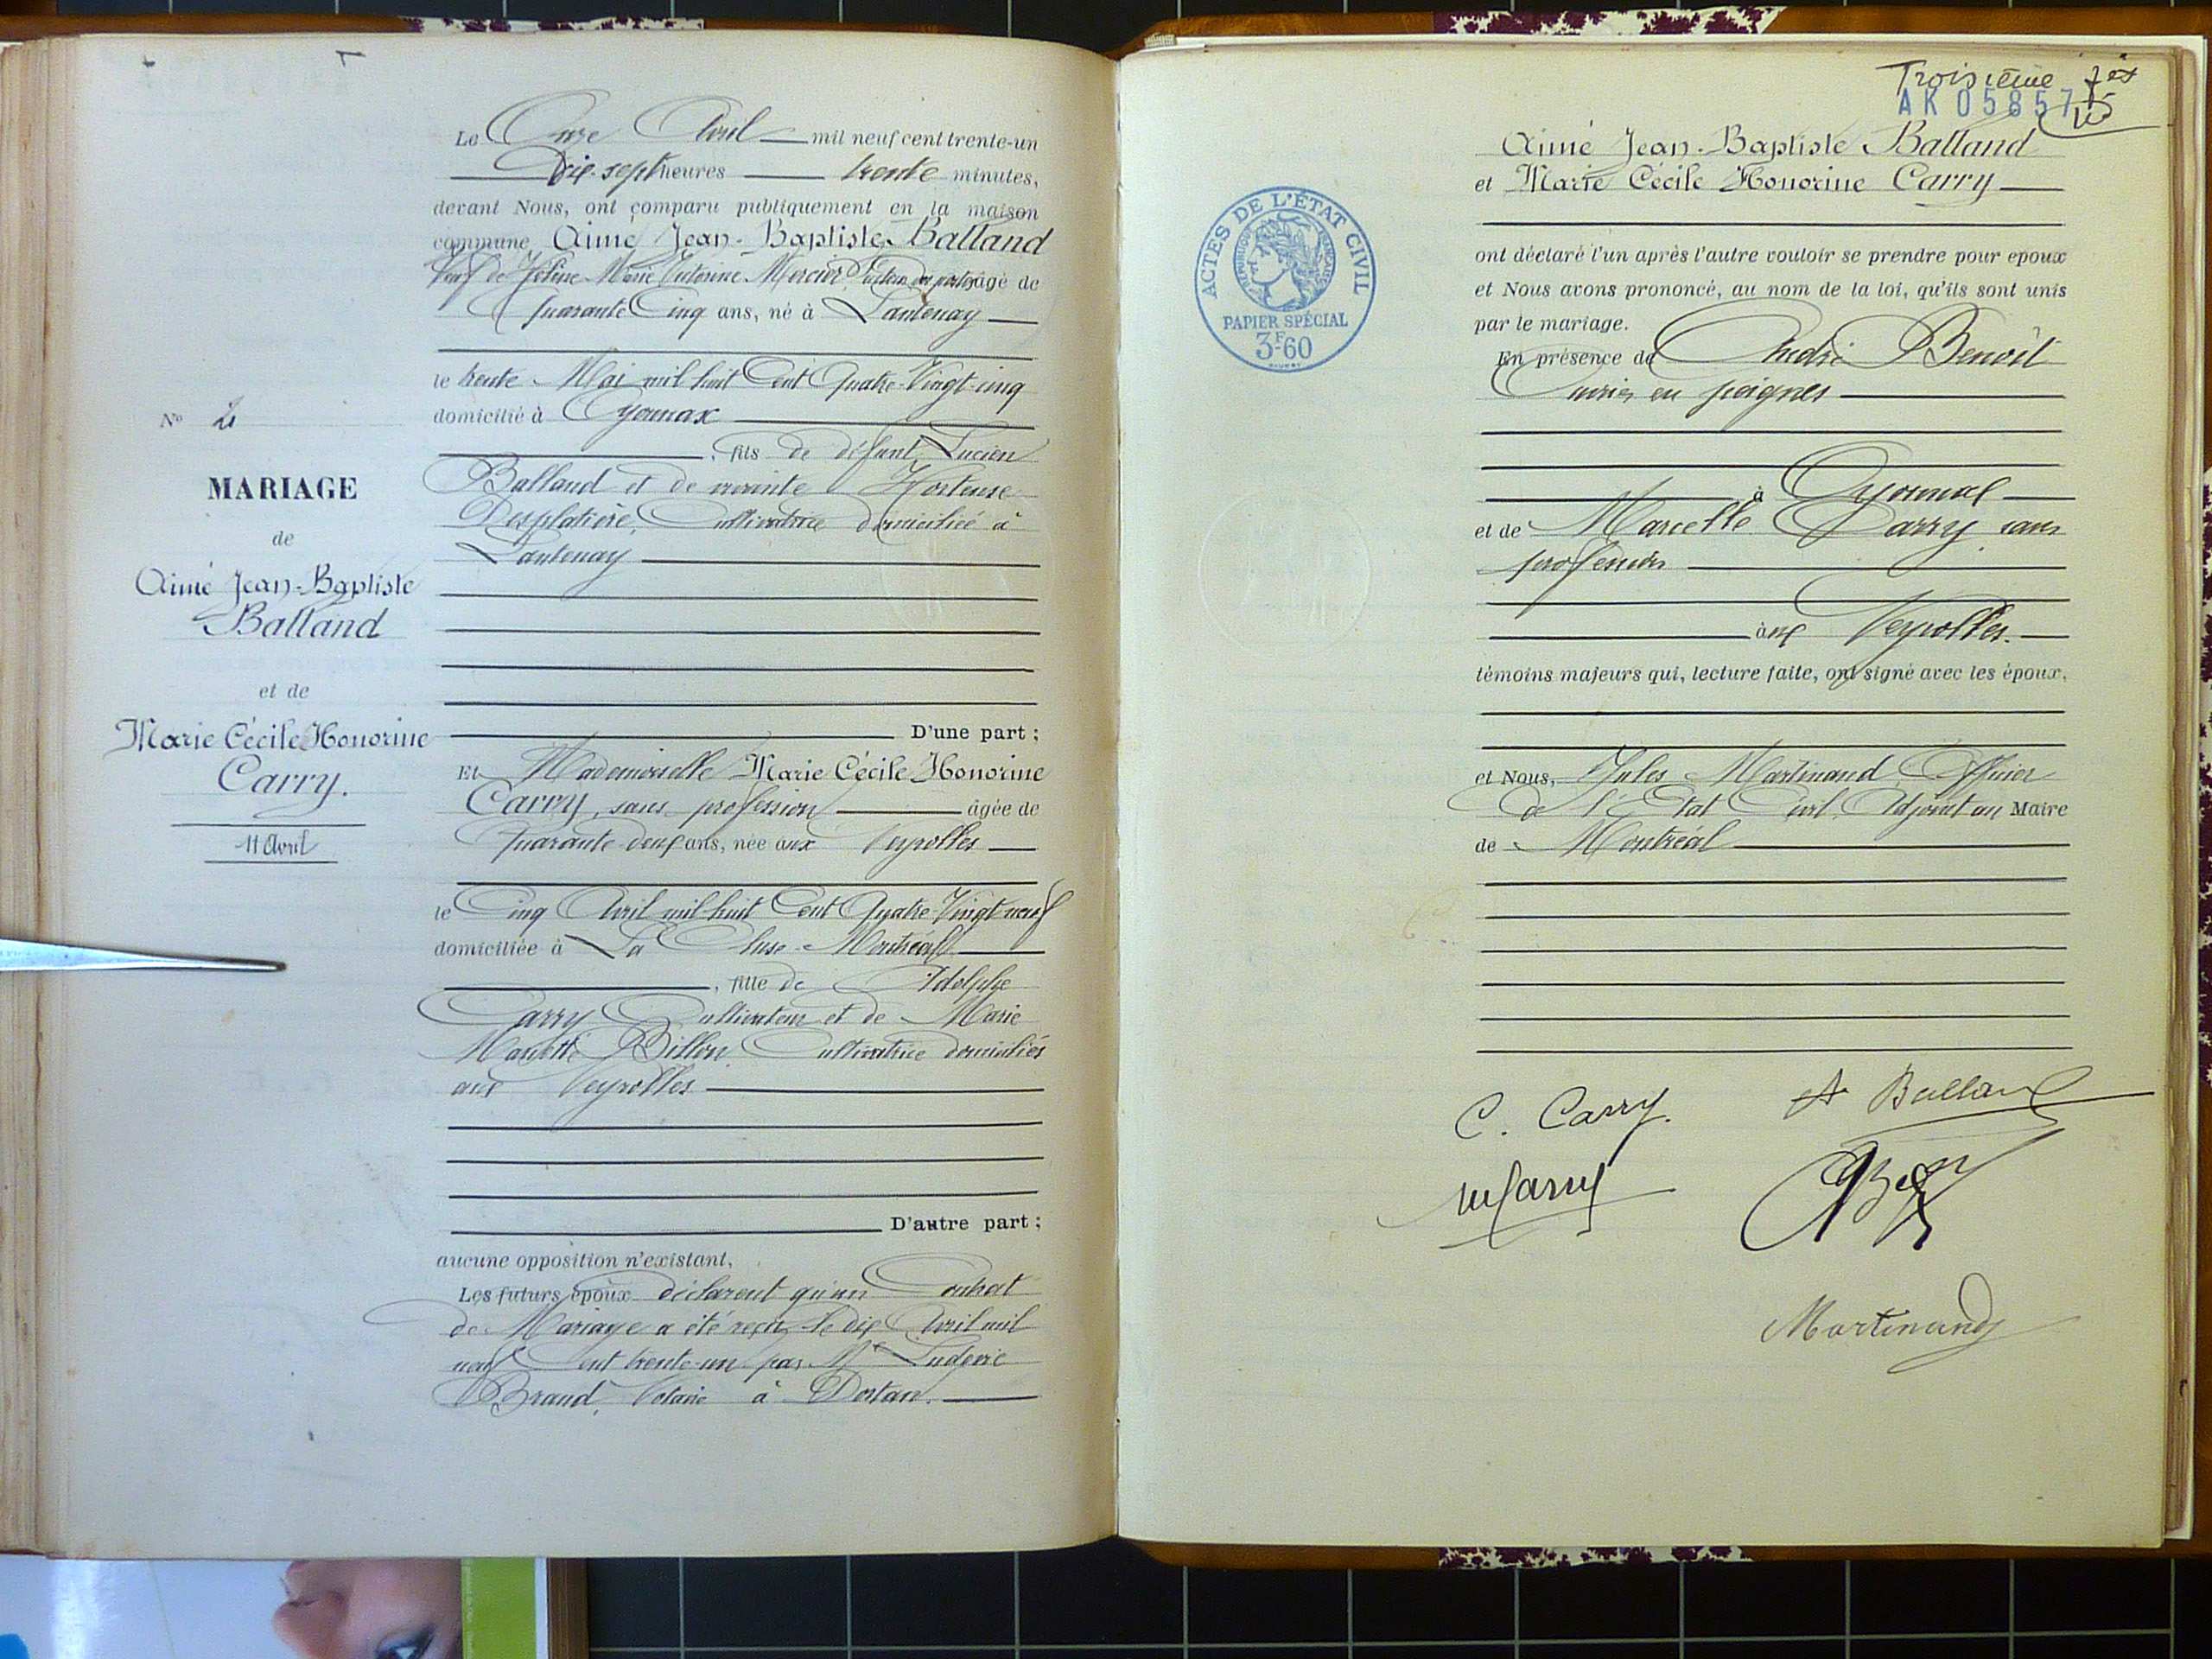 Le Onze Avril mil neuf cent trente-un
Dix-sept heures trente minutes,
devant Nous, ont comparu publiquement en la maison
commune Aimé Jean-Baptiste Balland
Veuf de Marie Mercier âgé de
quarante Cinq ans, né à Lantenay
le trente Mai mil huit Cent Quatre-Vingt-cinq
domicilié à Oyonnax
, fils de défunt Lucien
Balland et de vivante Hortense
Desplatière, Cultivatrice domiciliée à
Lantenay
D'une part ;
Et Mademoiselle Marie Cécile Honorine
Carry, sans profession âgée de
quarante-deux ans, née aux Veyrolles
le Cinq Avril mil-huit Cent Quatre-Vingt-neuf
domiciliée à La Cluse-Montréal
, fille de Adolphe
Carry Cultivateur et de Marie
Billon Cultivatrice domiciliés
aux Veyrolles
D'autre part ;
aucune opposition n'existant,
Les futurs époux déclarent qu'un Contrat
de Mariage a été reçu le dix Avril mil
neuf Cent trente-un par Me Ludovic
Brand, Notaire à Dortan.
No 2
MARIAGE
de
Aimé Jean-Baptiste
Balland
et de
Marie Cécile Honorine
Carry.
11 Avril
Troisième
AK 05857
Aimé Jean-Baptiste Balland
et Marie Cécile Honorine Carry
ACTES DE L'ÉTAT CIVIL
RÉPUBLIQUE FRANÇAISE
PAPIER SPÉCIAL
3F60
ont déclaré l'un après l'autre vouloir se prendre pour époux
et Nous avons prononcé, au nom de la loi, qu'ils sont unis
par le mariage.
En présence de André Benoit
Ouvrier en peignes
à Oyonnax
et de Marcelle Carry, sans
profession
aux Veyrolles.
témoins majeurs qui, lecture faite, ont signé avec les époux,
et Nous, Jules Martinand Officier
de l'Etat Civil Adjoint au Maire
de Montréal
C. Carry. A Balland
M Carry
Martinand